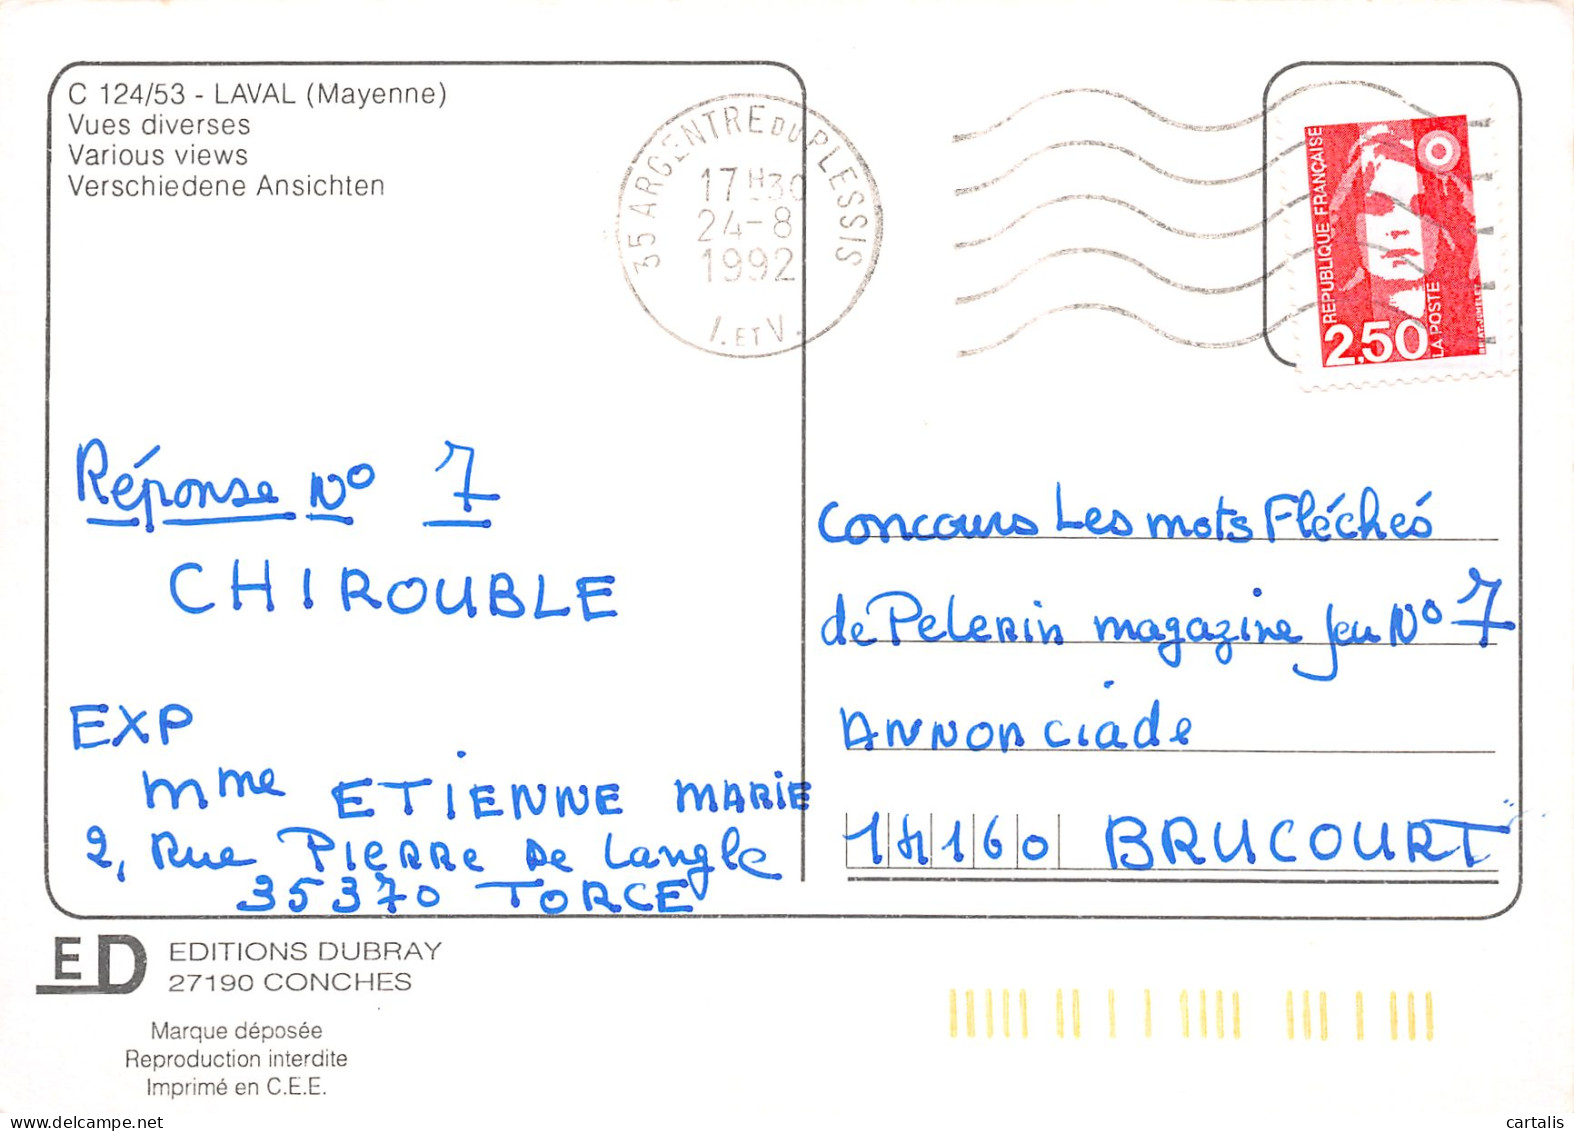 C 124/53 - LAVAL (Mayenne)
Vues diverses
Various views
Verschiedene Ansichten
35 ARGENTRE DU PLESSIS
17H30
24-8
1992
I. ET V.
RÉPUBLIQUE FRANÇAISE
2,50
LA POSTE
Réponse No 7
CHIROUBLE
EXP
Mme ETIENNE MARIE
2, Rue PIERRE De Langle
35370 TORCE
Concours Les mots Fléchés
de Pelerin magazine Jeu No 7
ANNONciade
14160 BRUCOURT
ED
EDITIONS DUBRAY
27190 CONCHES
Marque déposée
Reproduction interdite
Imprimé en C.E.E.
cartalis